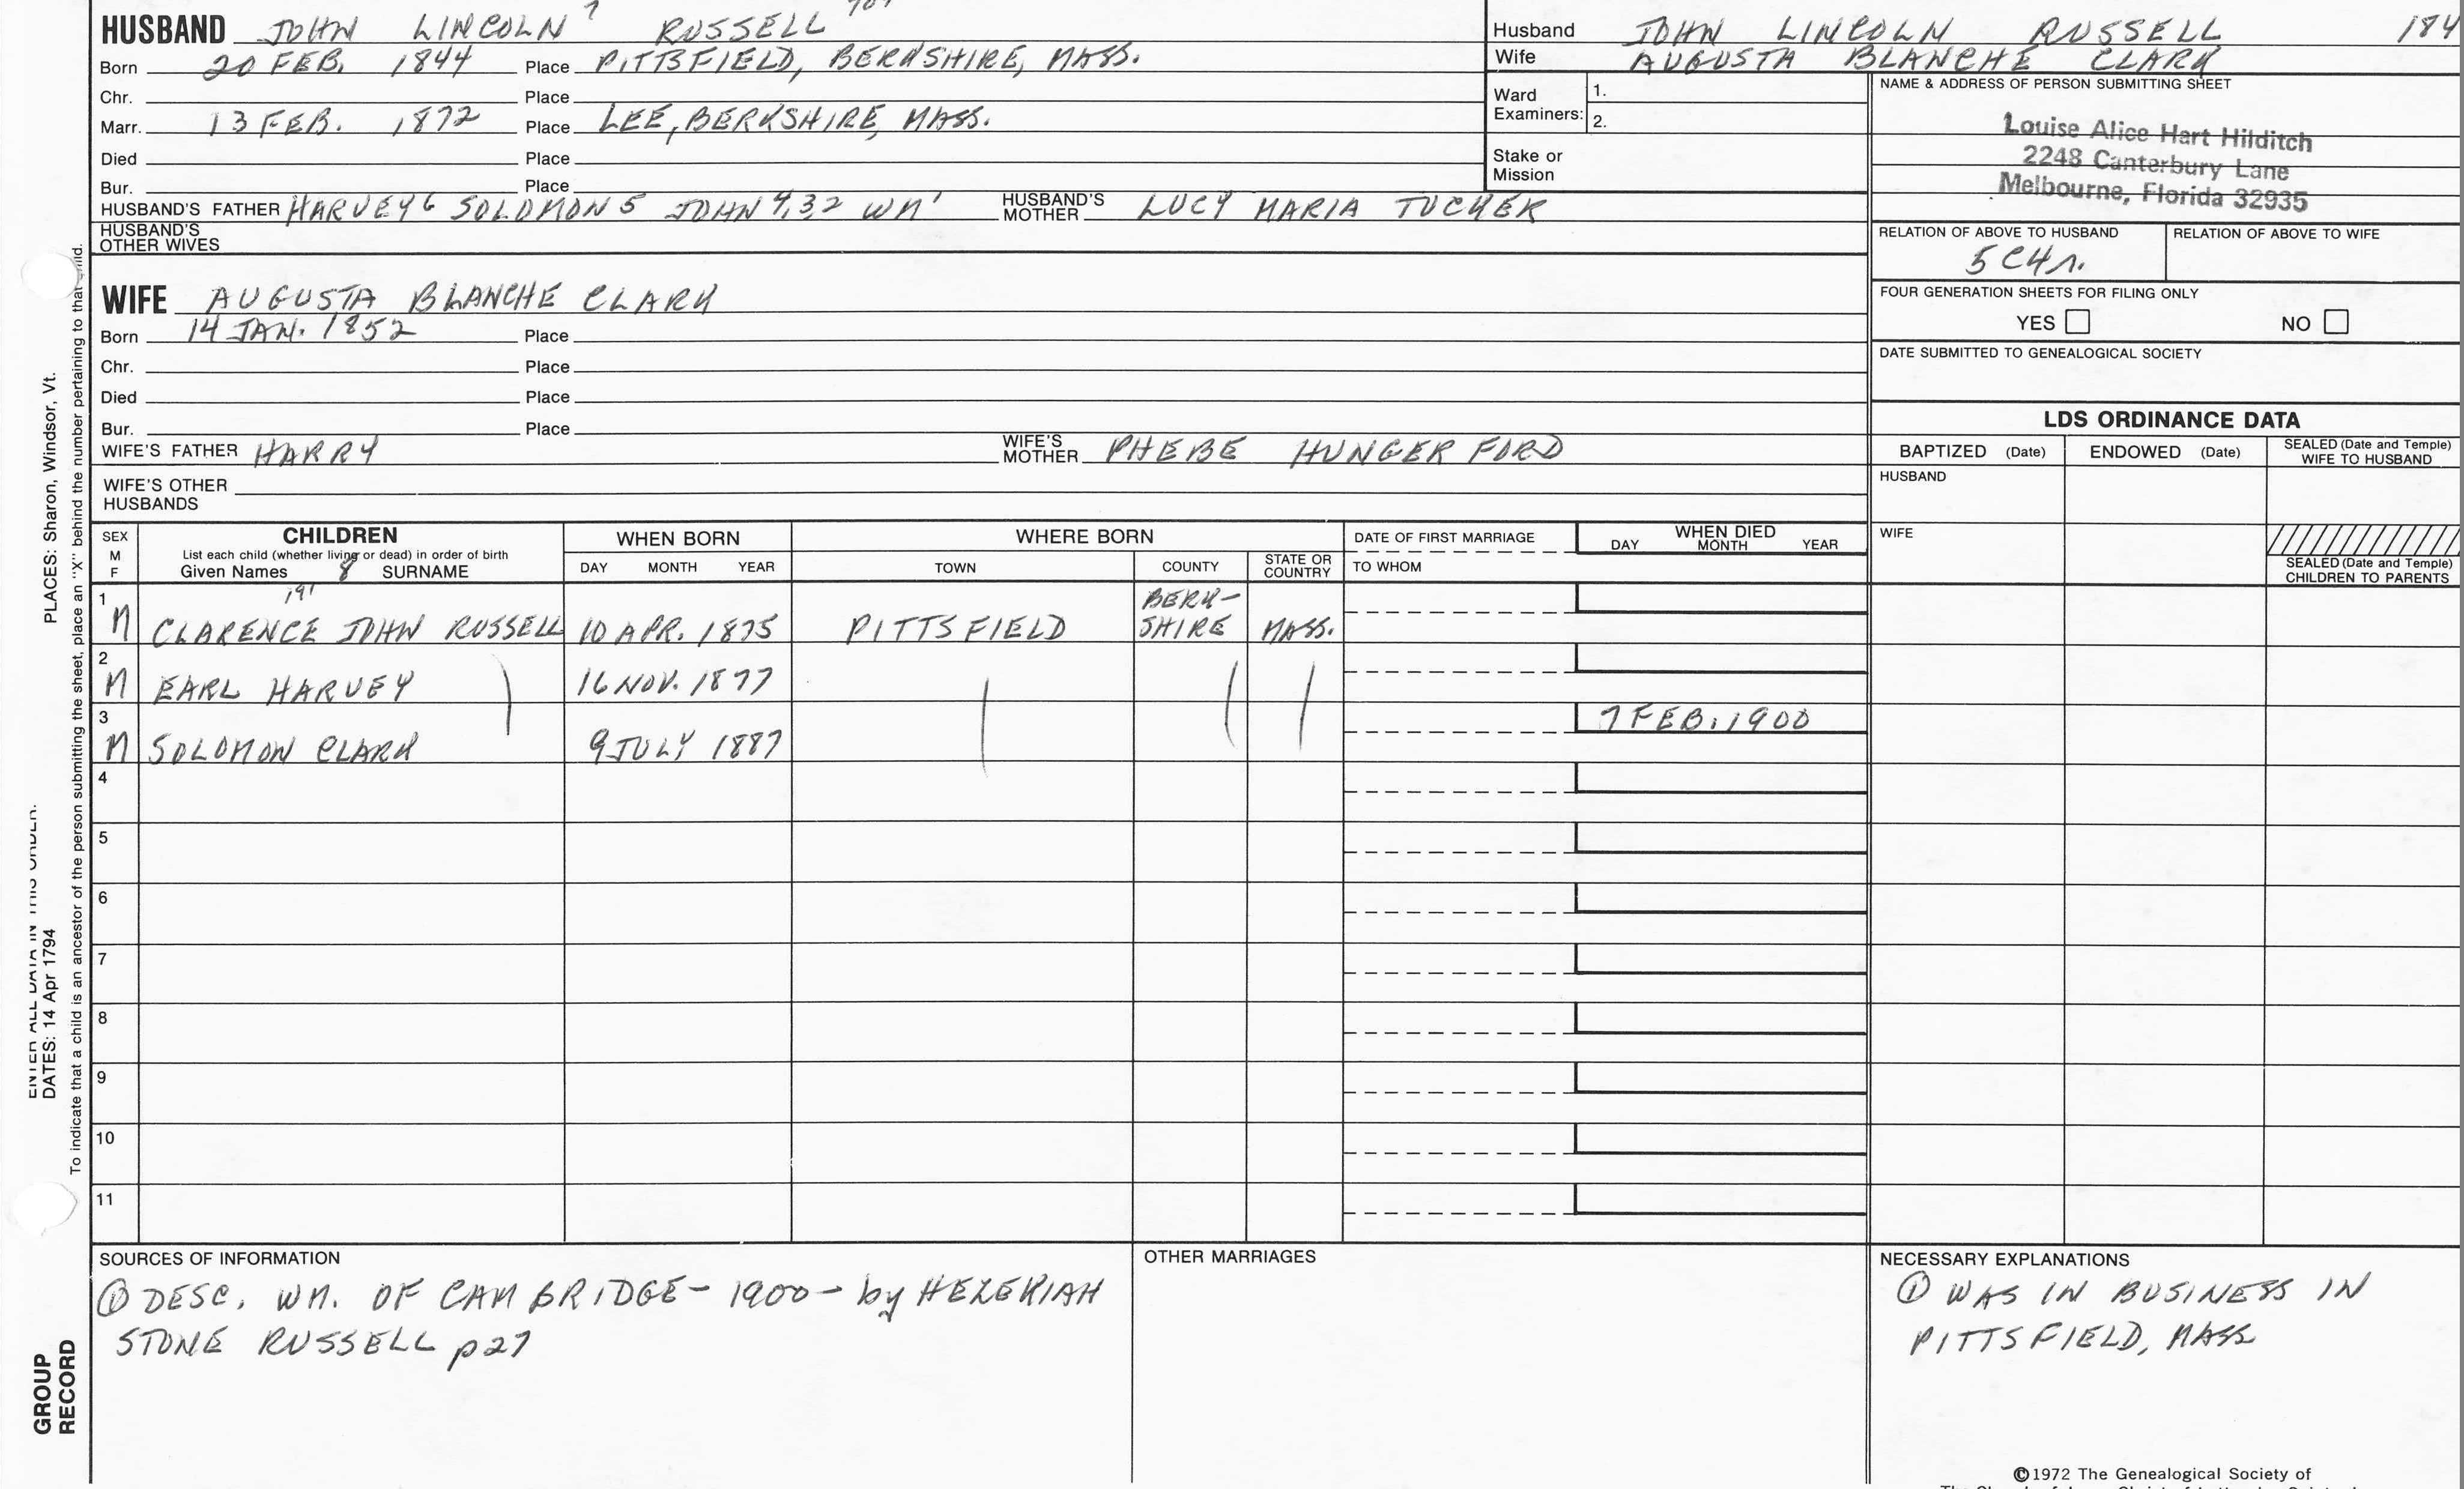 HUSBAND JOHN LINCOLN 7 RUSSELL
Born 20 FEB. 1844 Place PITTSFIELD, BERKSHIRE, MASS.
Chr. Place
Marr. 13 FEB. 1872 Place LEE, BERKSHIRE, MASS.
Died Place
Bur. Place
HUSBAND'S FATHER HARVEY6 SOLOMON5 JOHN4,3,2 WM1 HUSBAND'S MOTHER LUCY MARIA TUCKER
HUSBAND'S
OTHER WIVES
Husband JOHN LINCOLN RUSSELL 184
Wife AUGUSTA BLANCHE CLARK
Ward
Examiners: 1.
2.
Stake or
Mission
NAME & ADDRESS OF PERSON SUBMITTING SHEET
Louise Alice Hart Hilditch
2248 Canterbury Lane
Melbourne, Florida 32935
RELATION OF ABOVE TO HUSBAND RELATION OF ABOVE TO WIFE
5C4r.
FOUR GENERATION SHEETS FOR FILING ONLY
YES NO
DATE SUBMITTED TO GENEALOGICAL SOCIETY
WIFE AUGUSTA BLANCHE CLARK
Born 14 JAN. 1852 Place
Chr. Place
Died Place
Bur. Place
WIFE'S FATHER HARRY WIFE'S MOTHER PHEBE HUNGERFORD
WIFE'S OTHER
HUSBANDS
LDS ORDINANCE DATA
BAPTIZED (Date) ENDOWED (Date) SEALED (Date and Temple) WIFE TO HUSBAND
HUSBAND
WIFE
SEALED (Date and Temple)
CHILDREN TO PARENTS
SEX
M
F
CHILDREN
List each child (whether living or dead) in order of birth
Given Names 8 SURNAME
WHEN BORN
DAY MONTH YEAR
WHERE BORN
TOWN COUNTY STATE OR COUNTRY
DATE OF FIRST MARRIAGE
TO WHOM
WHEN DIED
DAY MONTH YEAR
1 M CLARENCE JOHN RUSSELL 10 APR. 1875 PITTSFIELD BERK-SHIRE MASS.
2 M EARL HARVEY 16 NOV. 1877
3 M SOLOMON CLARK 9 JULY 1887 7 FEB. 1900
4
5
6
7
8
9
10
11
SOURCES OF INFORMATION
① DESC. WM. OF CAMBRIDGE- 1900- by HEZEKIAH
STONE RUSSELL p27
OTHER MARRIAGES
NECESSARY EXPLANATIONS
① WAS IN BUSINESS IN
PITTSFIELD, MASS
©1972 The Genealogical Society of
PLACES: Sharon, Windsor, Vt.
DATES: 14 Apr 1794
To indicate that a child is an ancestor of the person submitting the sheet, place an "X" behind the number pertaining to that child.
GROUP
RECORD